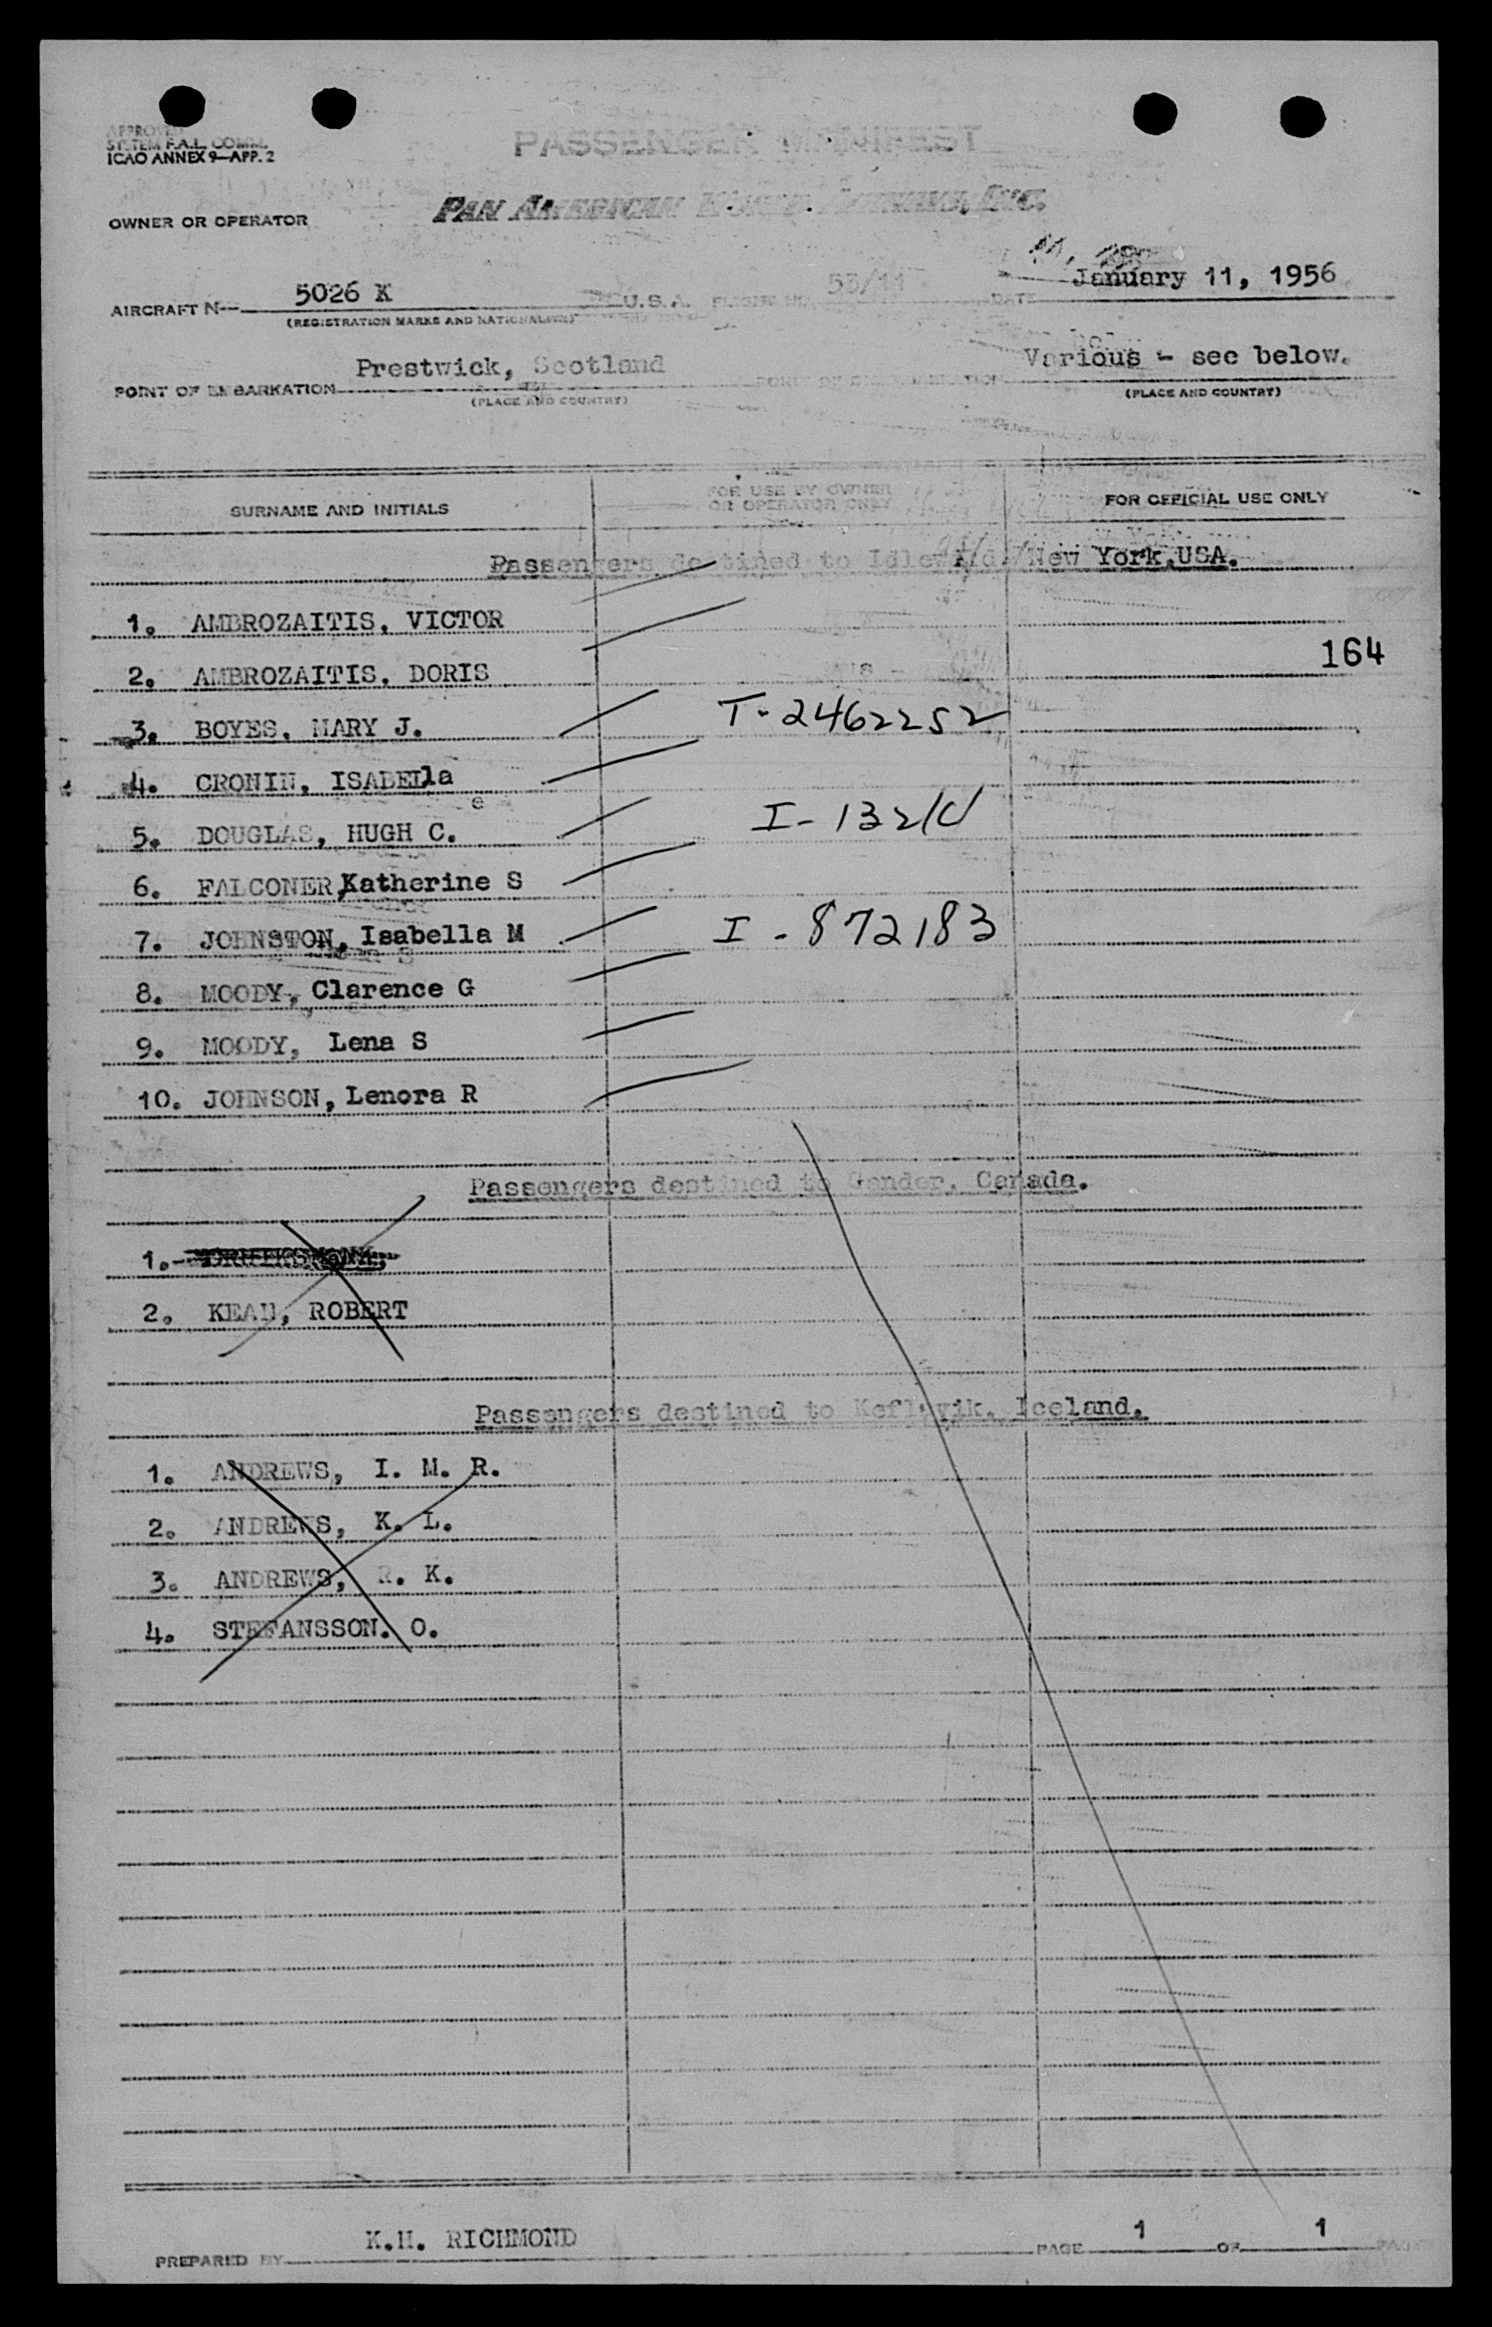 APPROVED
SYSTEM F.A.L. COMM.
ICAO ANNEX 9—APP. 2
PASSENGER MANIFEST
OWNER OR OPERATOR
PAN AMERICAN WORLD AIRWAYS, INC.
January 11, 1956
AIRCRAFT N— 5026 K U.S.A. FLIGHT NO. 53/11 DATE
(REGISTRATION MARKS AND NATIONALITY)
Prestwick, Scotland Various - see below.
POINT OF EMBARKATION
(PLACE AND COUNTRY) (PLACE AND COUNTRY)
SURNAME AND INITIALS FOR USE BY OWNER OR OPERATOR ONLY FOR OFFICIAL USE ONLY
Passengers destined to Idlewild, New York, USA.
1. AMBROZAITIS, VICTOR
164
2. AMBROZAITIS, DORIS
3. BOYES, MARY J. T-2462252
4. CRONIN, ISABELla
5. DOUGLAS, HUGH C. I-132
6. FALCONER, Katherine S
7. JOHNSTON, Isabella M I-872183
8. MOODY, Clarence G
9. MOODY, Lena S
10. JOHNSON, Lenora R
Passengers destined to Gander, Canada.
1.
2. KEAN, ROBERT
Passengers destined to Keflavik, Iceland.
1. ANDREWS, I. M. R.
2. ANDREWS, K. L.
3. ANDREWS, R. K.
4. STEFANSSON. O.
K.H. RICHMOND
PREPARED BY PAGE 1 OF 1 PAGES